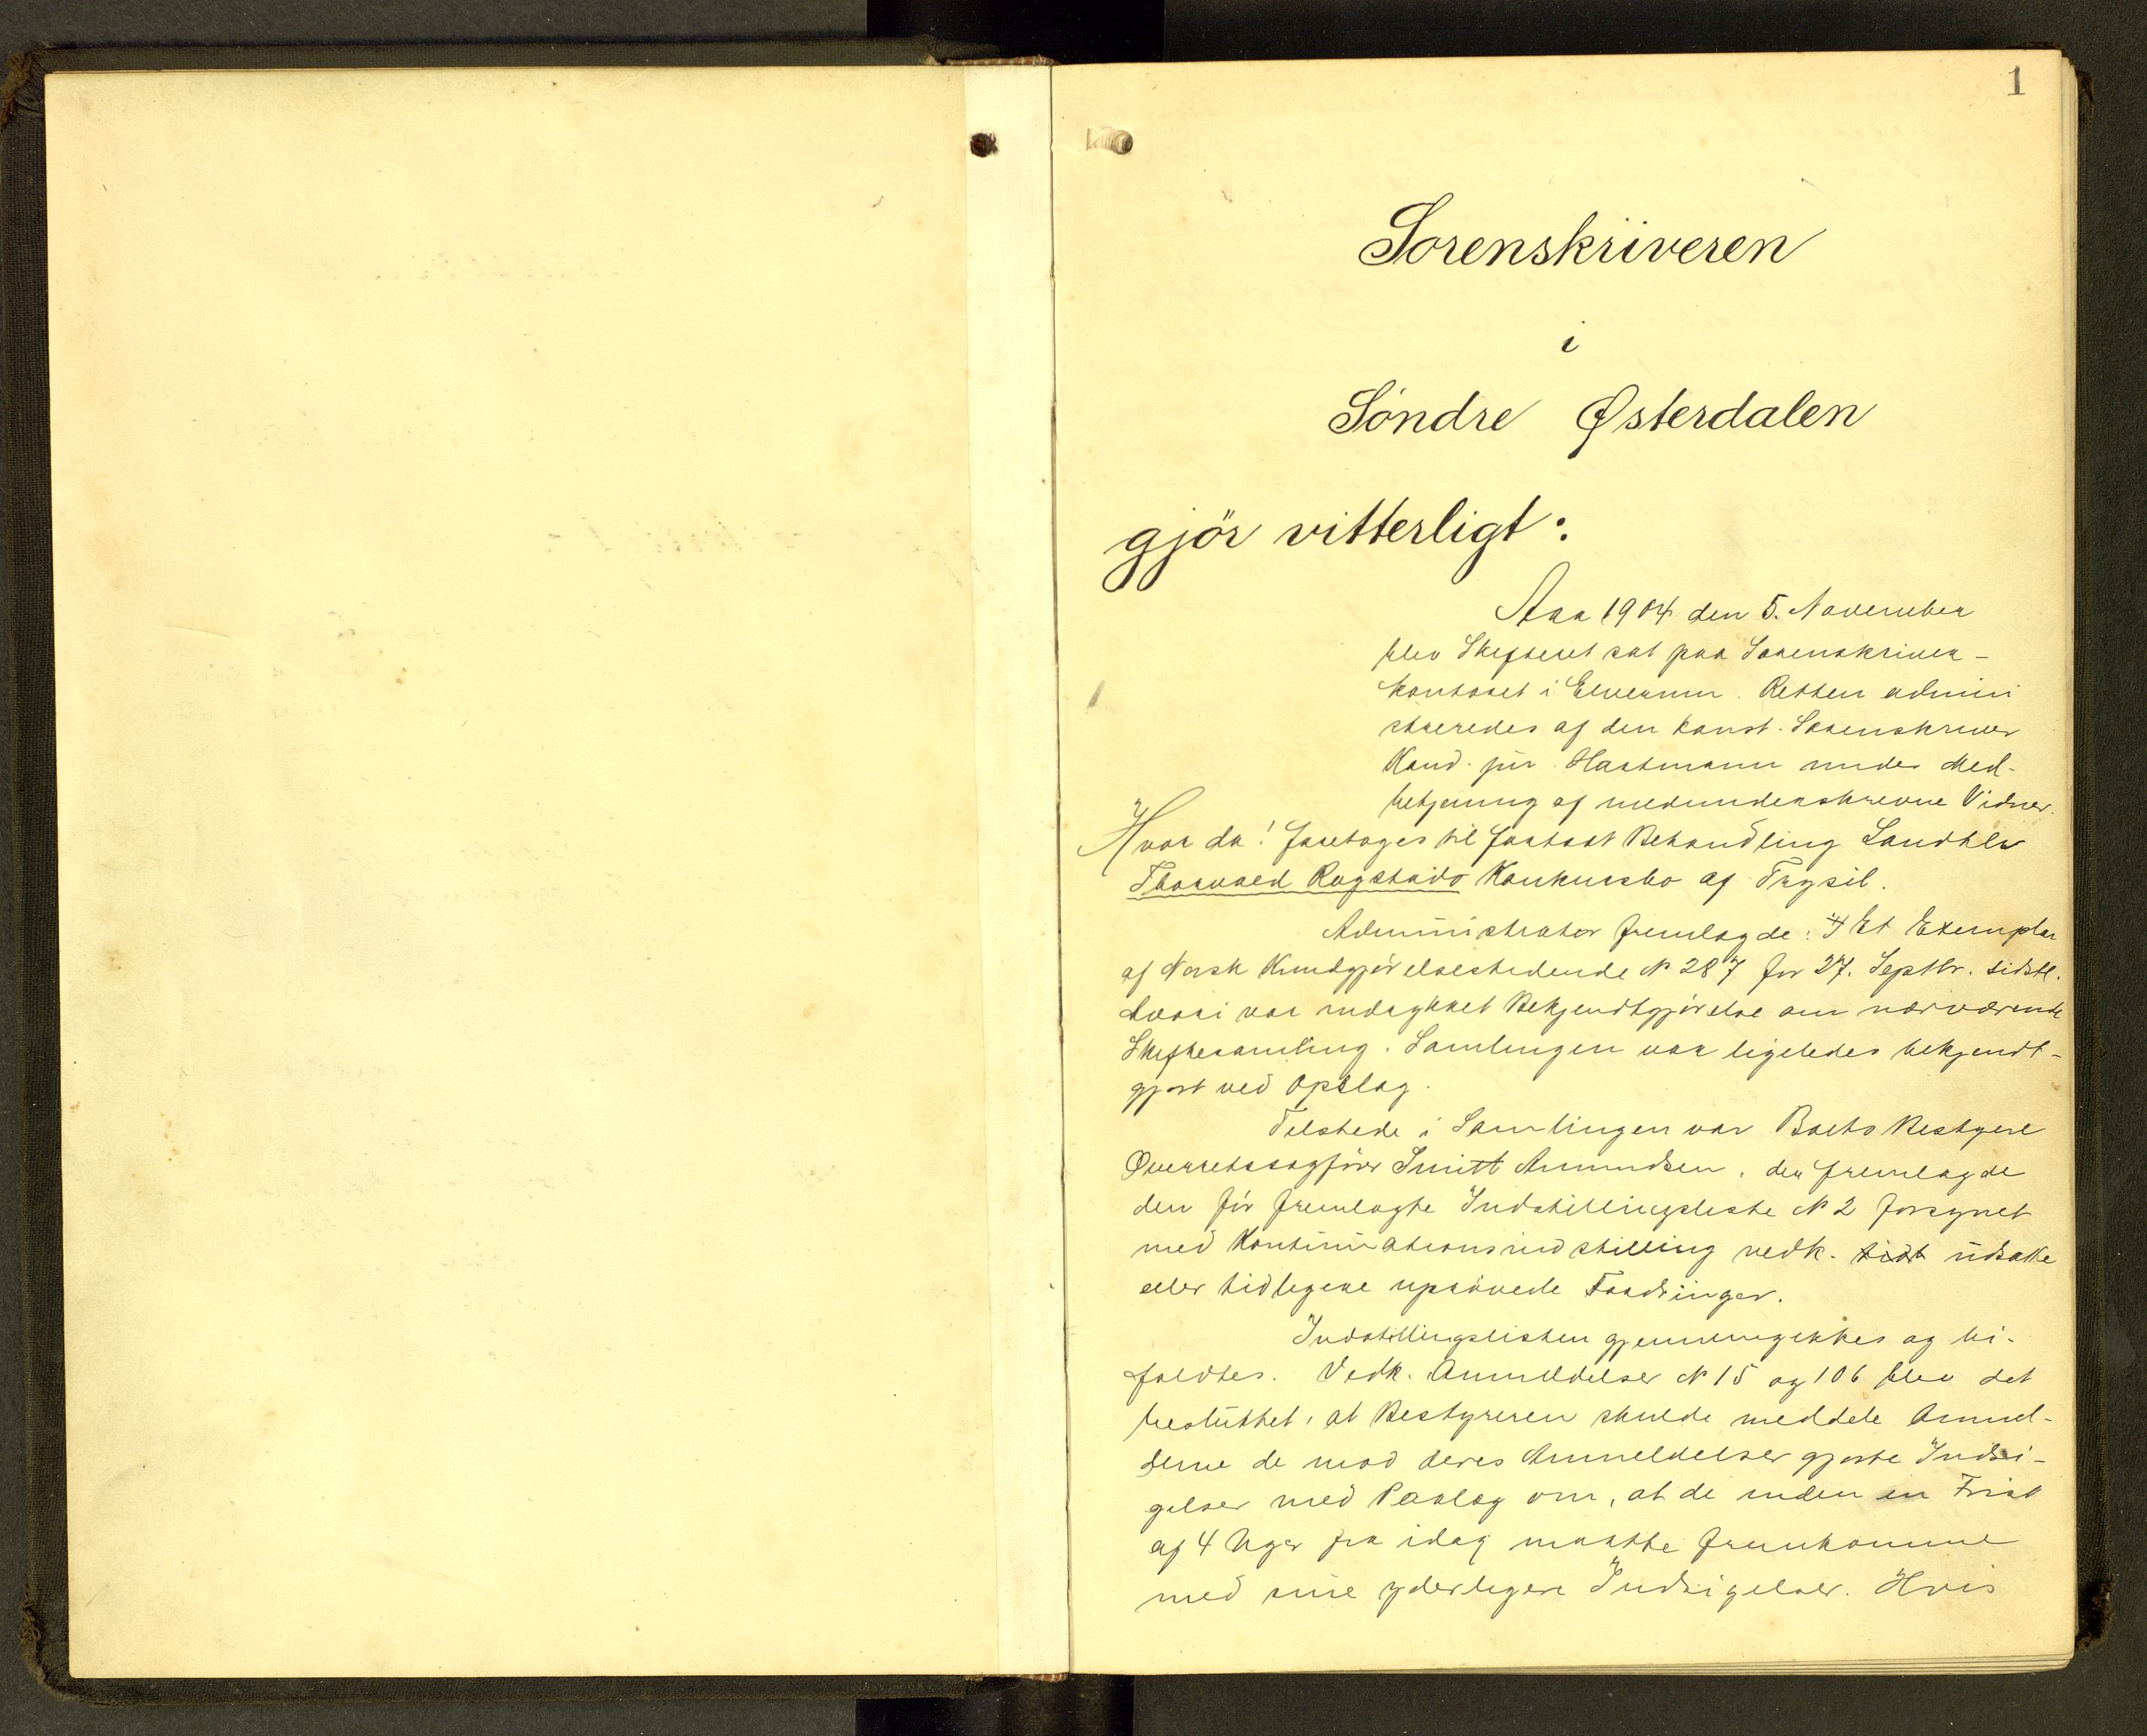 1
Sorenskriveren
i
Söndre Østerdalen
gjör vitterligt:
Aar 1904 den 5. November
blev Skifteret sat paa Sorenskriver-
kontoret i Elverum. Retten admini
streredes af den konst. Sorenskriver
Kand. jur. Hartmann under Med-
betjening af medunderskrevne Vidner.
Hvor da! foretoges til fortsat Behandling Landhlr
Thorvald Rugstads Konkursbo af Trysil.
Administrator fremlagde: Et Exemplar
af Norsk Kundgjörelsestidende N 287 for 27. Septbr. sidstl.
hvori var indrykket Bekjendtgjörelse om nærværende
Skiftesamling. Samlingen var ligeledes bekjendt-
gjort ved Opslag.
Tilstede i Samlingen var Boets Bestyrer
Overretssagförer Smitt Amundsen, der fremlagde
den för fremlagte Indstillingsliste N 2 forsynet
med Kontinuationsindstilling vedk. tidt udsatte
eller tidligere uprövede Fordringer.
Indstillingslisten gjennemgikkes og bi-
foldtes. Vedk. Anmeldelser N 15 og 106 blev det
besluttet, at Bestyreren skulde meddele Anmel-
derne de mod deres Anmeldelser gjorte Indsi-
gelser med Paalæg om, at de inden en Frist
af 4 Uger fra idag maatte fremkomme
med sine yderligere Indsigelser. Hvis